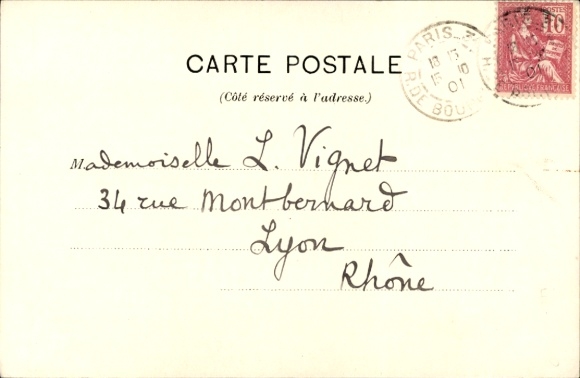 CARTE POSTALE
(Côté réservé à l'adresse.)
PARIS
18 15
15 10
01
R. DE
10
POSTES
RÉPUBLIQUE FRANÇAISE
Mademoiselle L. Vignet
34 rue Montbernard
Lyon
Rhône